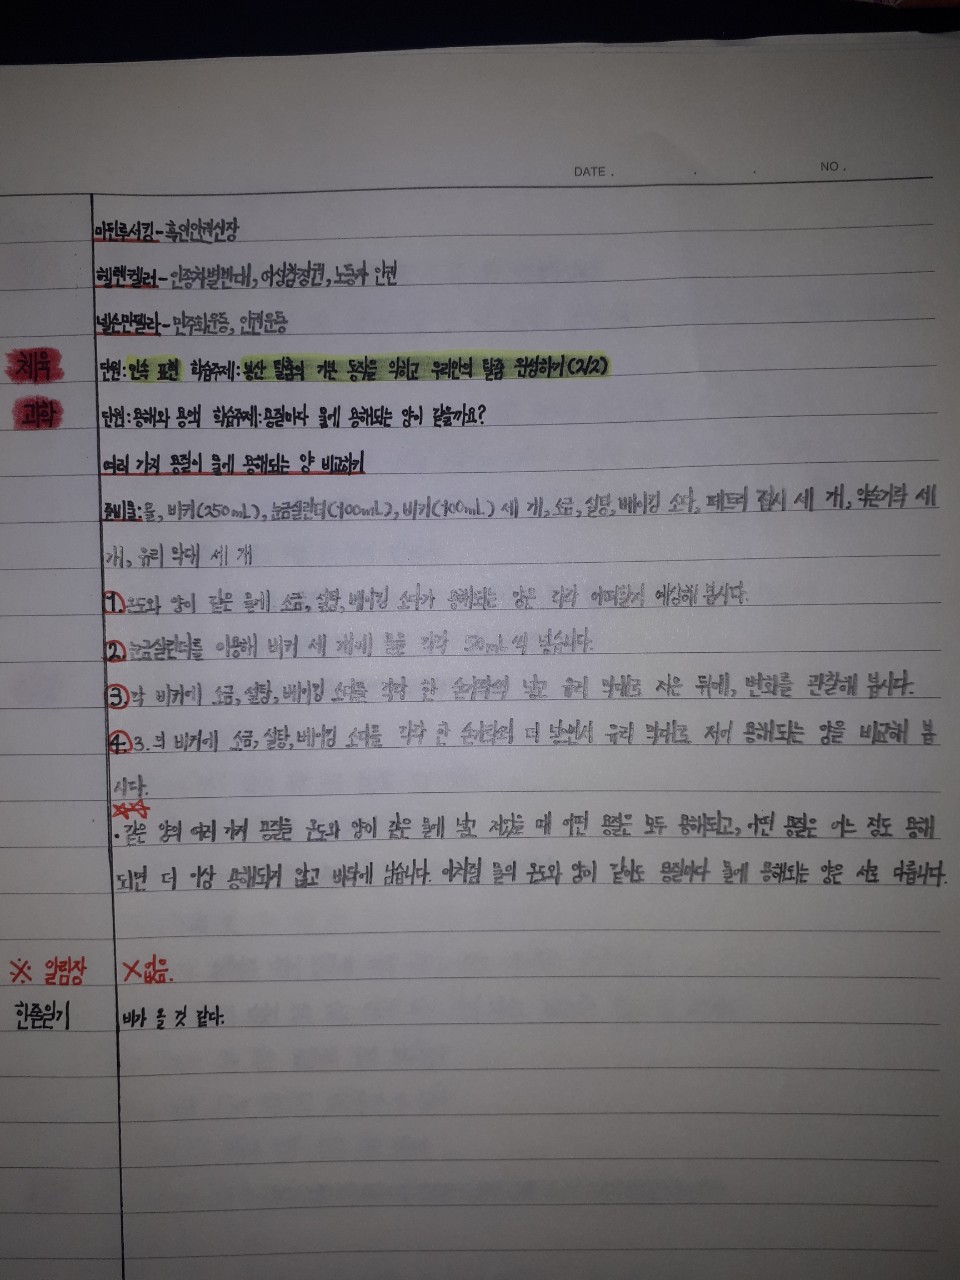 DATE . . . NO .
마틴루서킹-흑인인권신장
헬렌켈러-인종차별반대, 여성참정권, 노동자 인권
넬슨만델라-민주화운동, 인권운동
체육 단원:민속 표현 학습주제:봉산 탈춤의 기본 동작을 익히고 우리만의 탈춤 완성하기(2/2)
과학 단원:용해와 용액 학습주제:용질마다 물에 용해되는 양이 같을까요?
여러 가지 용질이 물에 용해되는 양 비교하기
준비물:물, 비커(250mL), 눈금실린더(100mL), 비커(100mL) 세 개, 소금, 설탕, 베이킹 소다, 페트리 접시 세 개, 약숟가락 세
개, 유리 막대 세 개
1. 온도와 양이 같은 물에 소금, 설탕, 베이킹 소다가 용해되는 양은 각각 어떠할지 예상해 봅시다.
2. 눈금실린더를 이용해 비커 세 개에 물을 각각 50mL 씩 넣습니다.
3. 각 비커에 소금, 설탕, 베이킹 소다를 각각 한 숟가락씩 넣고 유리 막대로 저은 뒤에, 변화를 관찰해 봅시다.
4. 3. 의 비커에 소금, 설탕, 베이킹 소다를 각각 한 숟가락씩 더 넣으면서 유리 막대로 저어 용해되는 양을 비교해 봅
시다.
· 같은 양의 여러 가지 용질을 온도와 양이 같은 물에 넣고 저었을 때 어떤 용질은 모두 용해되고, 어떤 용질은 어느 정도 용해
되면 더 이상 용해되지 않고 바닥에 남습니다. 이처럼 물의 온도와 양이 같아도 용질마다 물에 용해되는 양은 서로 다릅니다.
※ 알림장 X없음.
한줄일기 비가 올 것 같다.